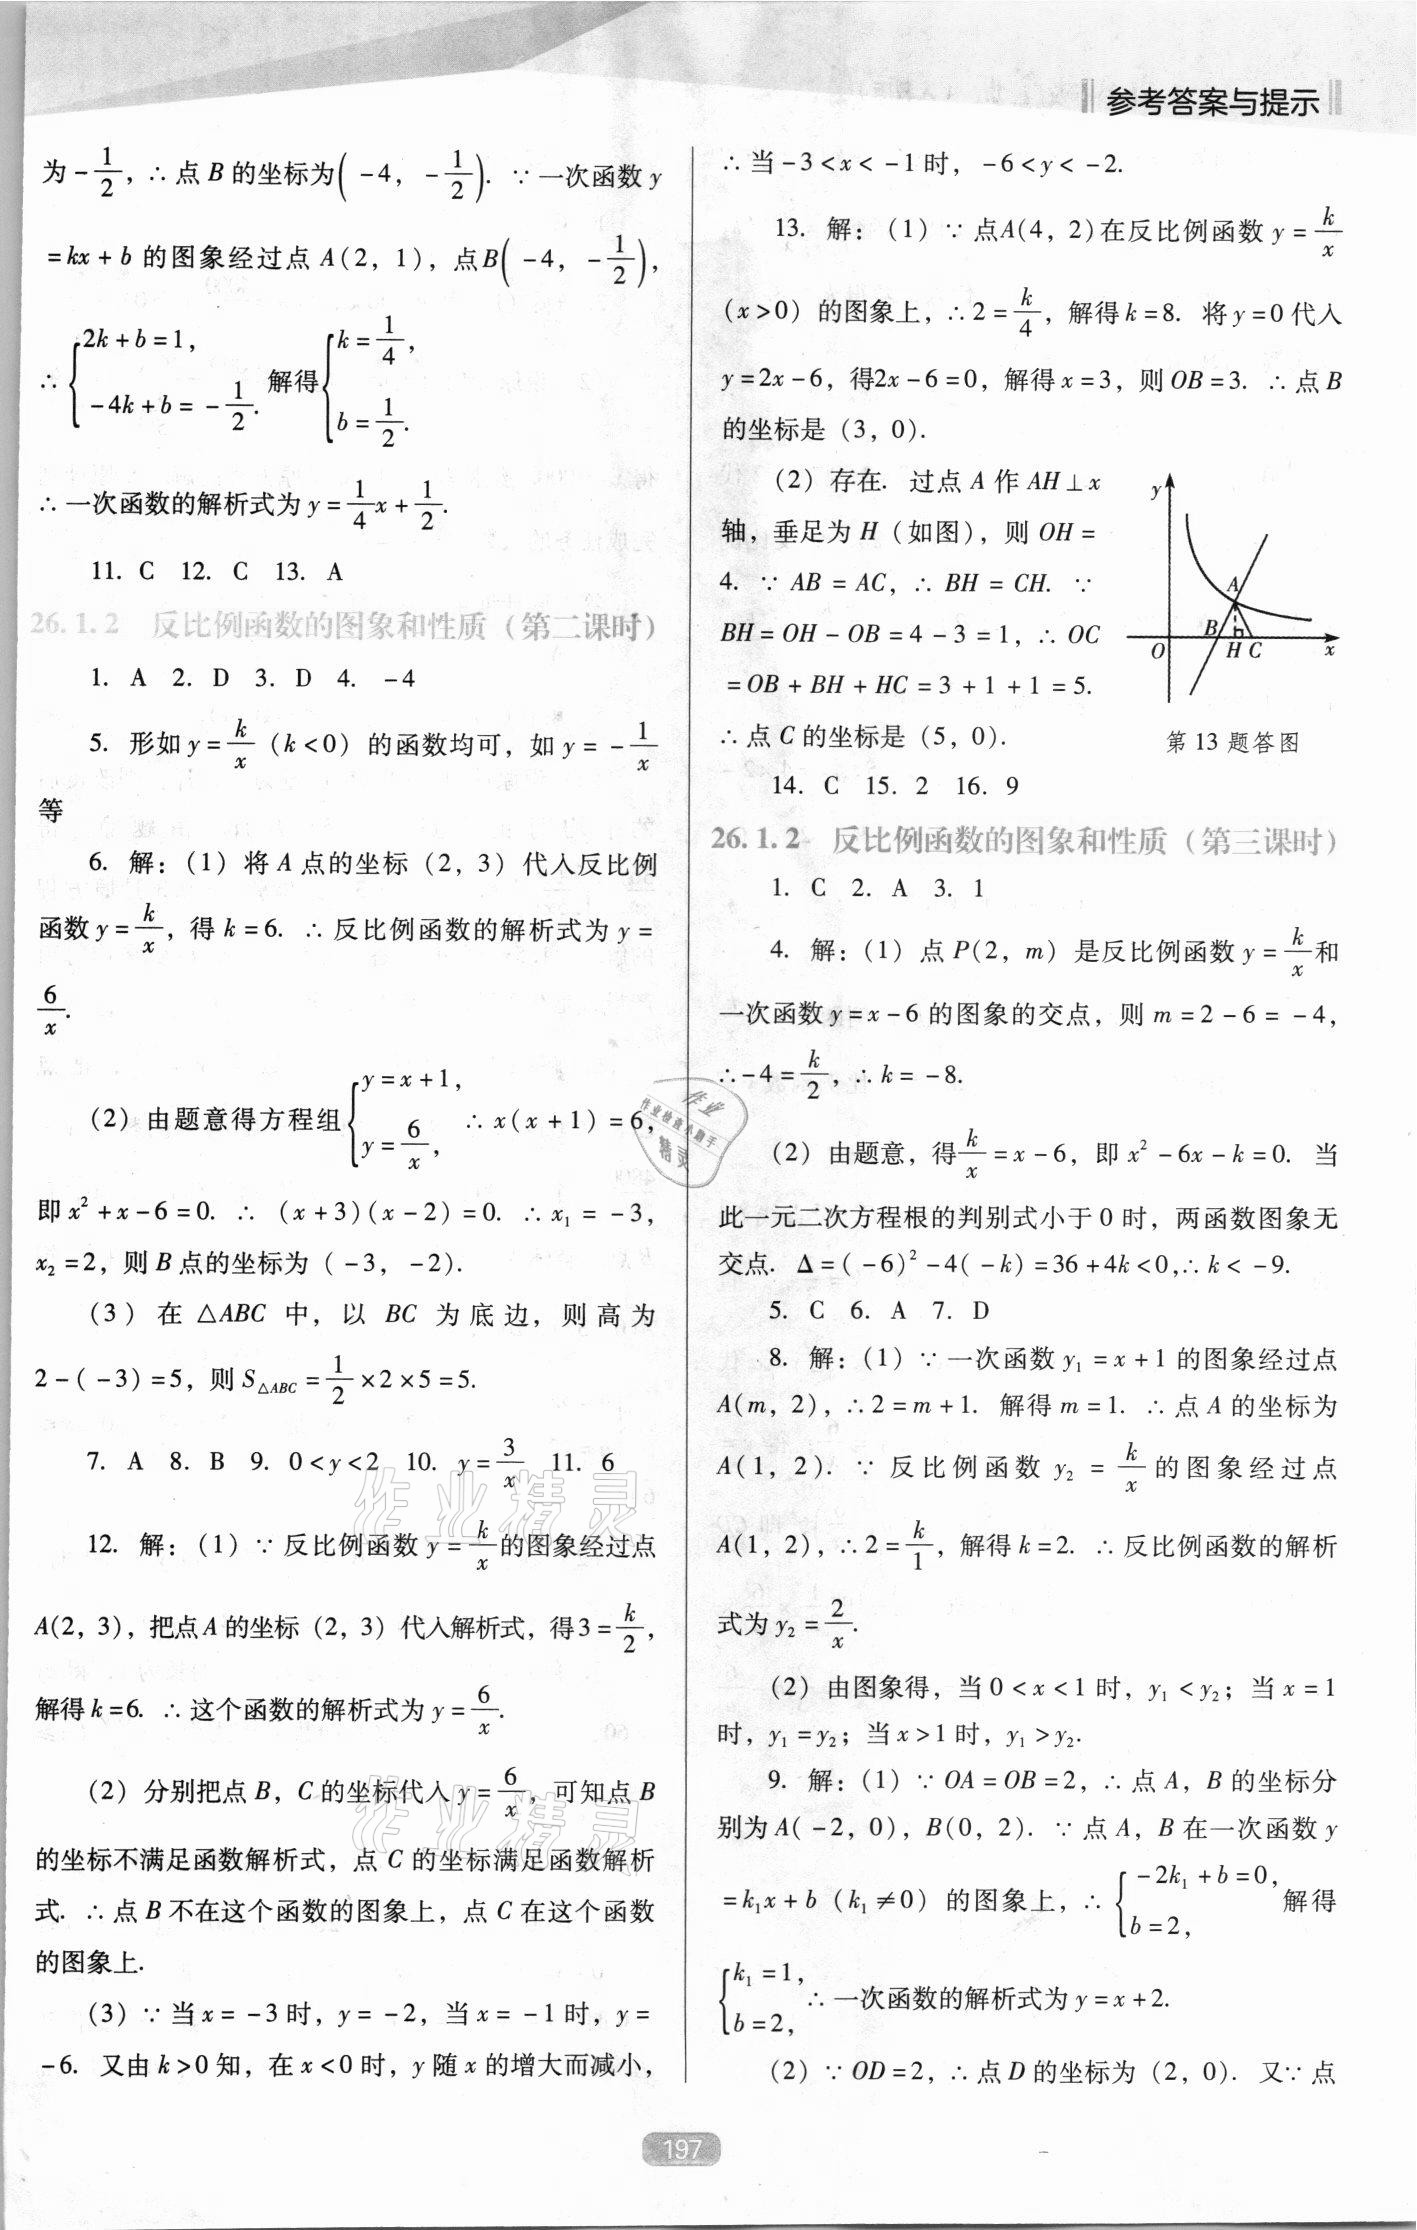 参考答案与提示
为-1/2，∴点B的坐标为(-4，-1/2). ∵一次函数y
=kx+b的图象经过点A(2，1)，点B(-4，-1/2)，
∴{2k+b=1，-4k+b=-1/2. 解得{k=1/4，b=1/2.
∴一次函数的解析式为y=1/4x+1/2.
11. C 12. C 13. A
26.1.2 反比例函数的图象和性质（第二课时）
1. A 2. D 3. D 4. -4
5. 形如y=k/x（k<0）的函数均可，如y=-1/x
等
6. 解：（1）将A点的坐标（2，3）代入反比例
函数y=k/x，得k=6. ∴反比例函数的解析式为y=
6/x.
（2）由题意得方程组{y=x+1，y=6/x， ∴x(x+1)=6，
即x²+x-6=0. ∴ (x+3)(x-2)=0. ∴x₁=-3，
x₂=2，则B点的坐标为（-3，-2）.
（3）在△ABC中，以BC为底边，则高为
2-(-3)=5，则S△ABC=1/2×2×5=5.
7. A 8. B 9. 0<y<2 10. y=3/x 11. 6
12. 解：（1）∵反比例函数y=k/x的图象经过点
A(2，3)，把点A的坐标（2，3）代入解析式，得3=k/2，
解得k=6. ∴这个函数的解析式为y=6/x.
（2）分别把点B，C的坐标代入y=6/x，可知点B
的坐标不满足函数解析式，点C的坐标满足函数解析
式. ∴点B不在这个函数的图象上，点C在这个函数
的图象上.
（3）∵当x=-3时，y=-2，当x=-1时，y=
-6. 又由k>0知，在x<0时，y随x的增大而减小，
∴当-3<x<-1时，-6<y<-2.
13. 解：（1）∵点A(4，2)在反比例函数y=k/x
（x>0）的图象上，∴2=k/4，解得k=8. 将y=0代入
y=2x-6，得2x-6=0，解得x=3，则OB=3. ∴点B
的坐标是（3，0）.
（2）存在. 过点A作AH⊥x
轴，垂足为H（如图），则OH=
4. ∵AB=AC，∴BH=CH. ∵
BH=OH-OB=4-3=1，∴OC
=OB+BH+HC=3+1+1=5.
∴点C的坐标是（5，0）.
y
A
B
O
H
C
x
第13题答图
14. C 15. 2 16. 9
26.1.2 反比例函数的图象和性质（第三课时）
1. C 2. A 3. 1
4. 解：（1）点P(2，m)是反比例函数y=k/x和
一次函数y=x-6的图象的交点，则m=2-6=-4，
∴-4=k/2，∴k=-8.
（2）由题意，得k/x=x-6，即x²-6x-k=0. 当
此一元二次方程根的判别式小于0时，两函数图象无
交点. Δ=(-6)²-4(-k)=36+4k<0，∴k<-9.
5. C 6. A 7. D
8. 解：（1）∵一次函数y₁=x+1的图象经过点
A(m，2)，∴2=m+1. 解得m=1. ∴点A的坐标为
A(1，2). ∵反比例函数y₂=k/x的图象经过点
A(1，2)，∴2=k/1，解得k=2. ∴反比例函数的解析
式为y₂=2/x.
（2）由图象得，当0<x<1时，y₁<y₂；当x=1
时，y₁=y₂；当x>1时，y₁>y₂.
9. 解：（1）∵OA=OB=2，∴点A，B的坐标分
别为A(-2，0)，B(0，2). ∵点A，B在一次函数y
=k₁x+b（k₁≠0）的图象上，∴{-2k₁+b=0，b=2， 解得
{k₁=1，b=2， ∴一次函数的解析式为y=x+2.
（2）∵OD=2，∴点D的坐标为（2，0）. 又∵点
作业
作业检查小助手
精灵
作业精灵
作业精灵
197